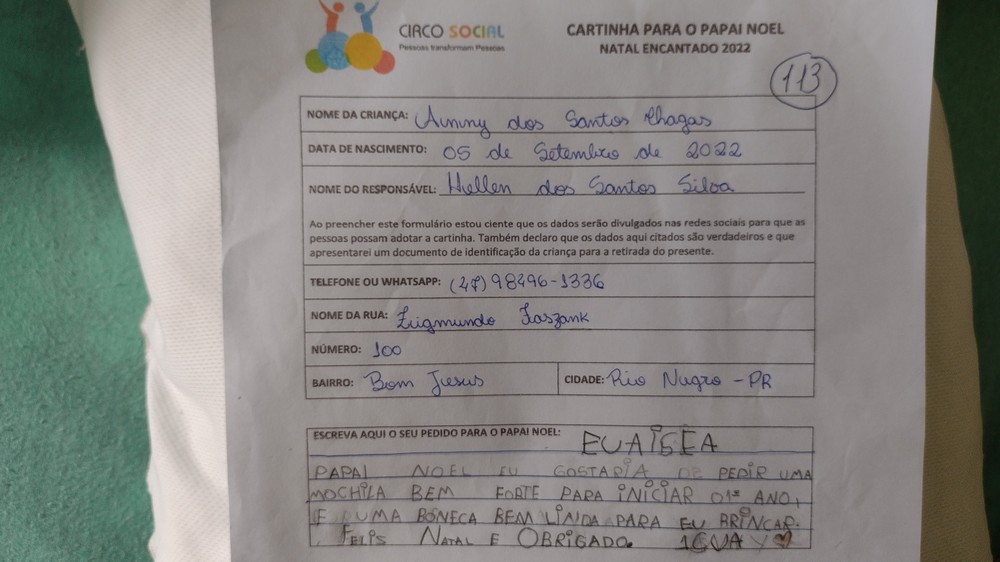 CIRCO SOCIAL
Pessoas transformam Pessoas
CARTINHA PARA O PAPAI NOEL
NATAL ENCANTADO 2022
113
NOME DA CRIANÇA: Aunny dos Santos Chagas
DATA DE NASCIMENTO: 05 de Setembro de 2022
NOME DO RESPONSÁVEL: Hellen dos Santos Silva
Ao preencher este formulário estou ciente que os dados serão divulgados nas redes sociais para que as
pessoas possam adotar a cartinha. Também declaro que os dados aqui citados são verdadeiros e que
apresentarei um documento de identificação da criança para a retirada do presente.
TELEFONE OU WHATSAPP: (47) 98496-1336
NOME DA RUA:
NÚMERO: 100
BAIRRO: Bom Jesus CIDADE: Rio Negro - PR
ESCREVA AQUI O SEU PEDIDO PARA O PAPAI NOEL:
PAPAI NOEL EU GOSTARIA DE PEDIR UMA
MOCHILA BEM FORTE PARA INICIAR O 1º ANO,
E UMA BONECA BEM LINDA PARA EU BRINCAR.
FELIS NATAL E OBRIGADO.